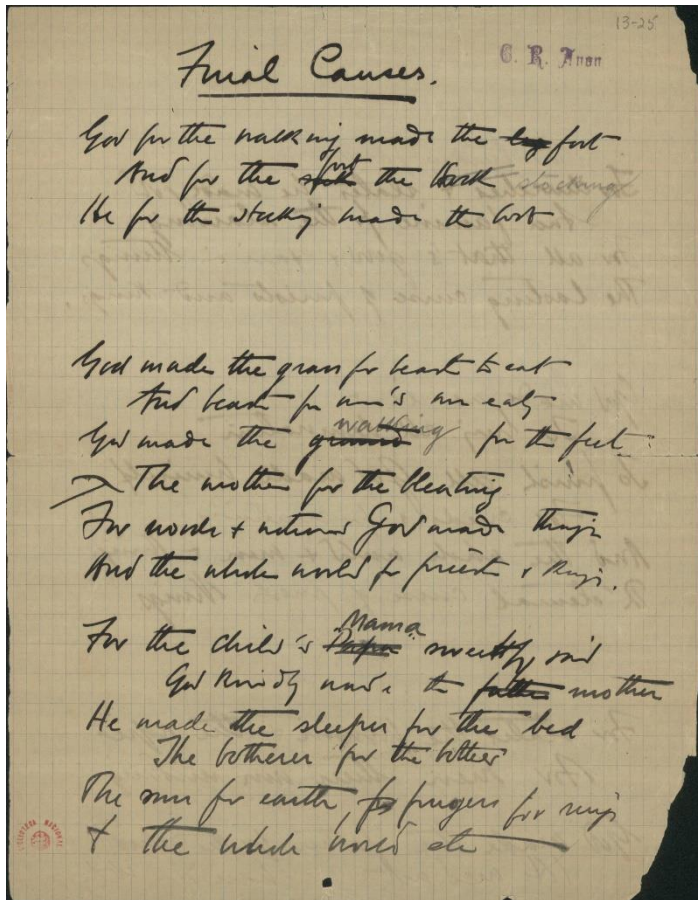 13-25
C. R. Anon
Final Causes.
God for the walking made the leg foot
And for the foot the stocking
He for the stocking made the boot
God made the grass for beast to eat
And beast for man's own eating
God made the ground walking for the feet
The mother for the bleating
For words & notions God made things
And the whole world for priests & kings.
For the child's Papa Mama sweetly said
God kindly made the father mother
He made the sleeper for the bed
The botherer for the bother
The sun for earth, for fingers for rings
& the whole world etc